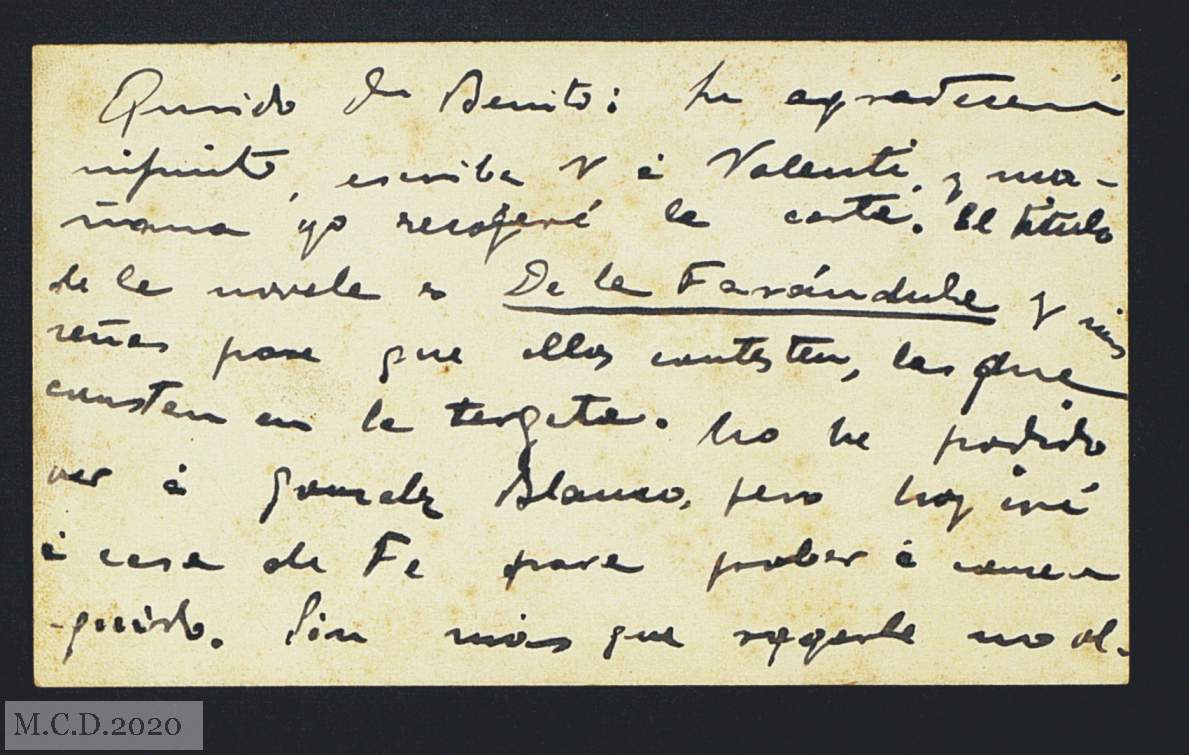 Querido Dn Benito: Le agradeceré
infinito, escriba V á Valenti, y ma-
ñana yo recogeré la carta. El título
de la novela es De la Farándula y mis
señas para que ellos contesten, las que
constan en la targeta. No he podido
ver á Gonzalez Blanco, pero hoy iré
á casa de Fe para probar á conse-
-guirlo. Sin más que rogarle no ol-
M.C.D.2020